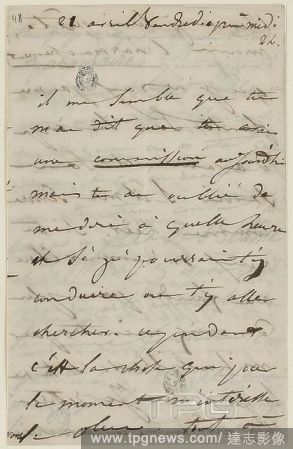 48
21 avril Vendredi après midi
2h.
il me semble que tu
m'as dit que tu avais
une commission aujourd'hui
mais tu as oublié de
me dire à quelle heure
et si je pourrais t'y
conduire ou t'y aller
chercher. cependant
c'est la chose qui pour
le moment m'intéresse
le plus. tout
www.tpgnews.com / 達志影像